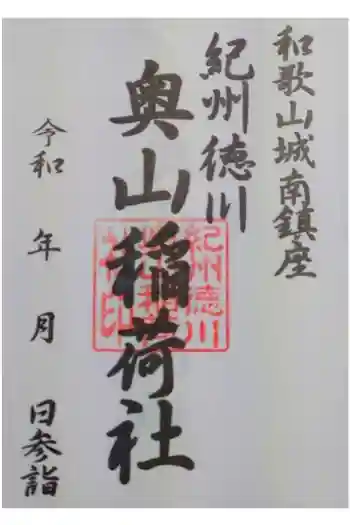 和歌山城南鎮座
紀州徳川
奥山稲荷社
令和 年 月 日参詣
紀州徳川